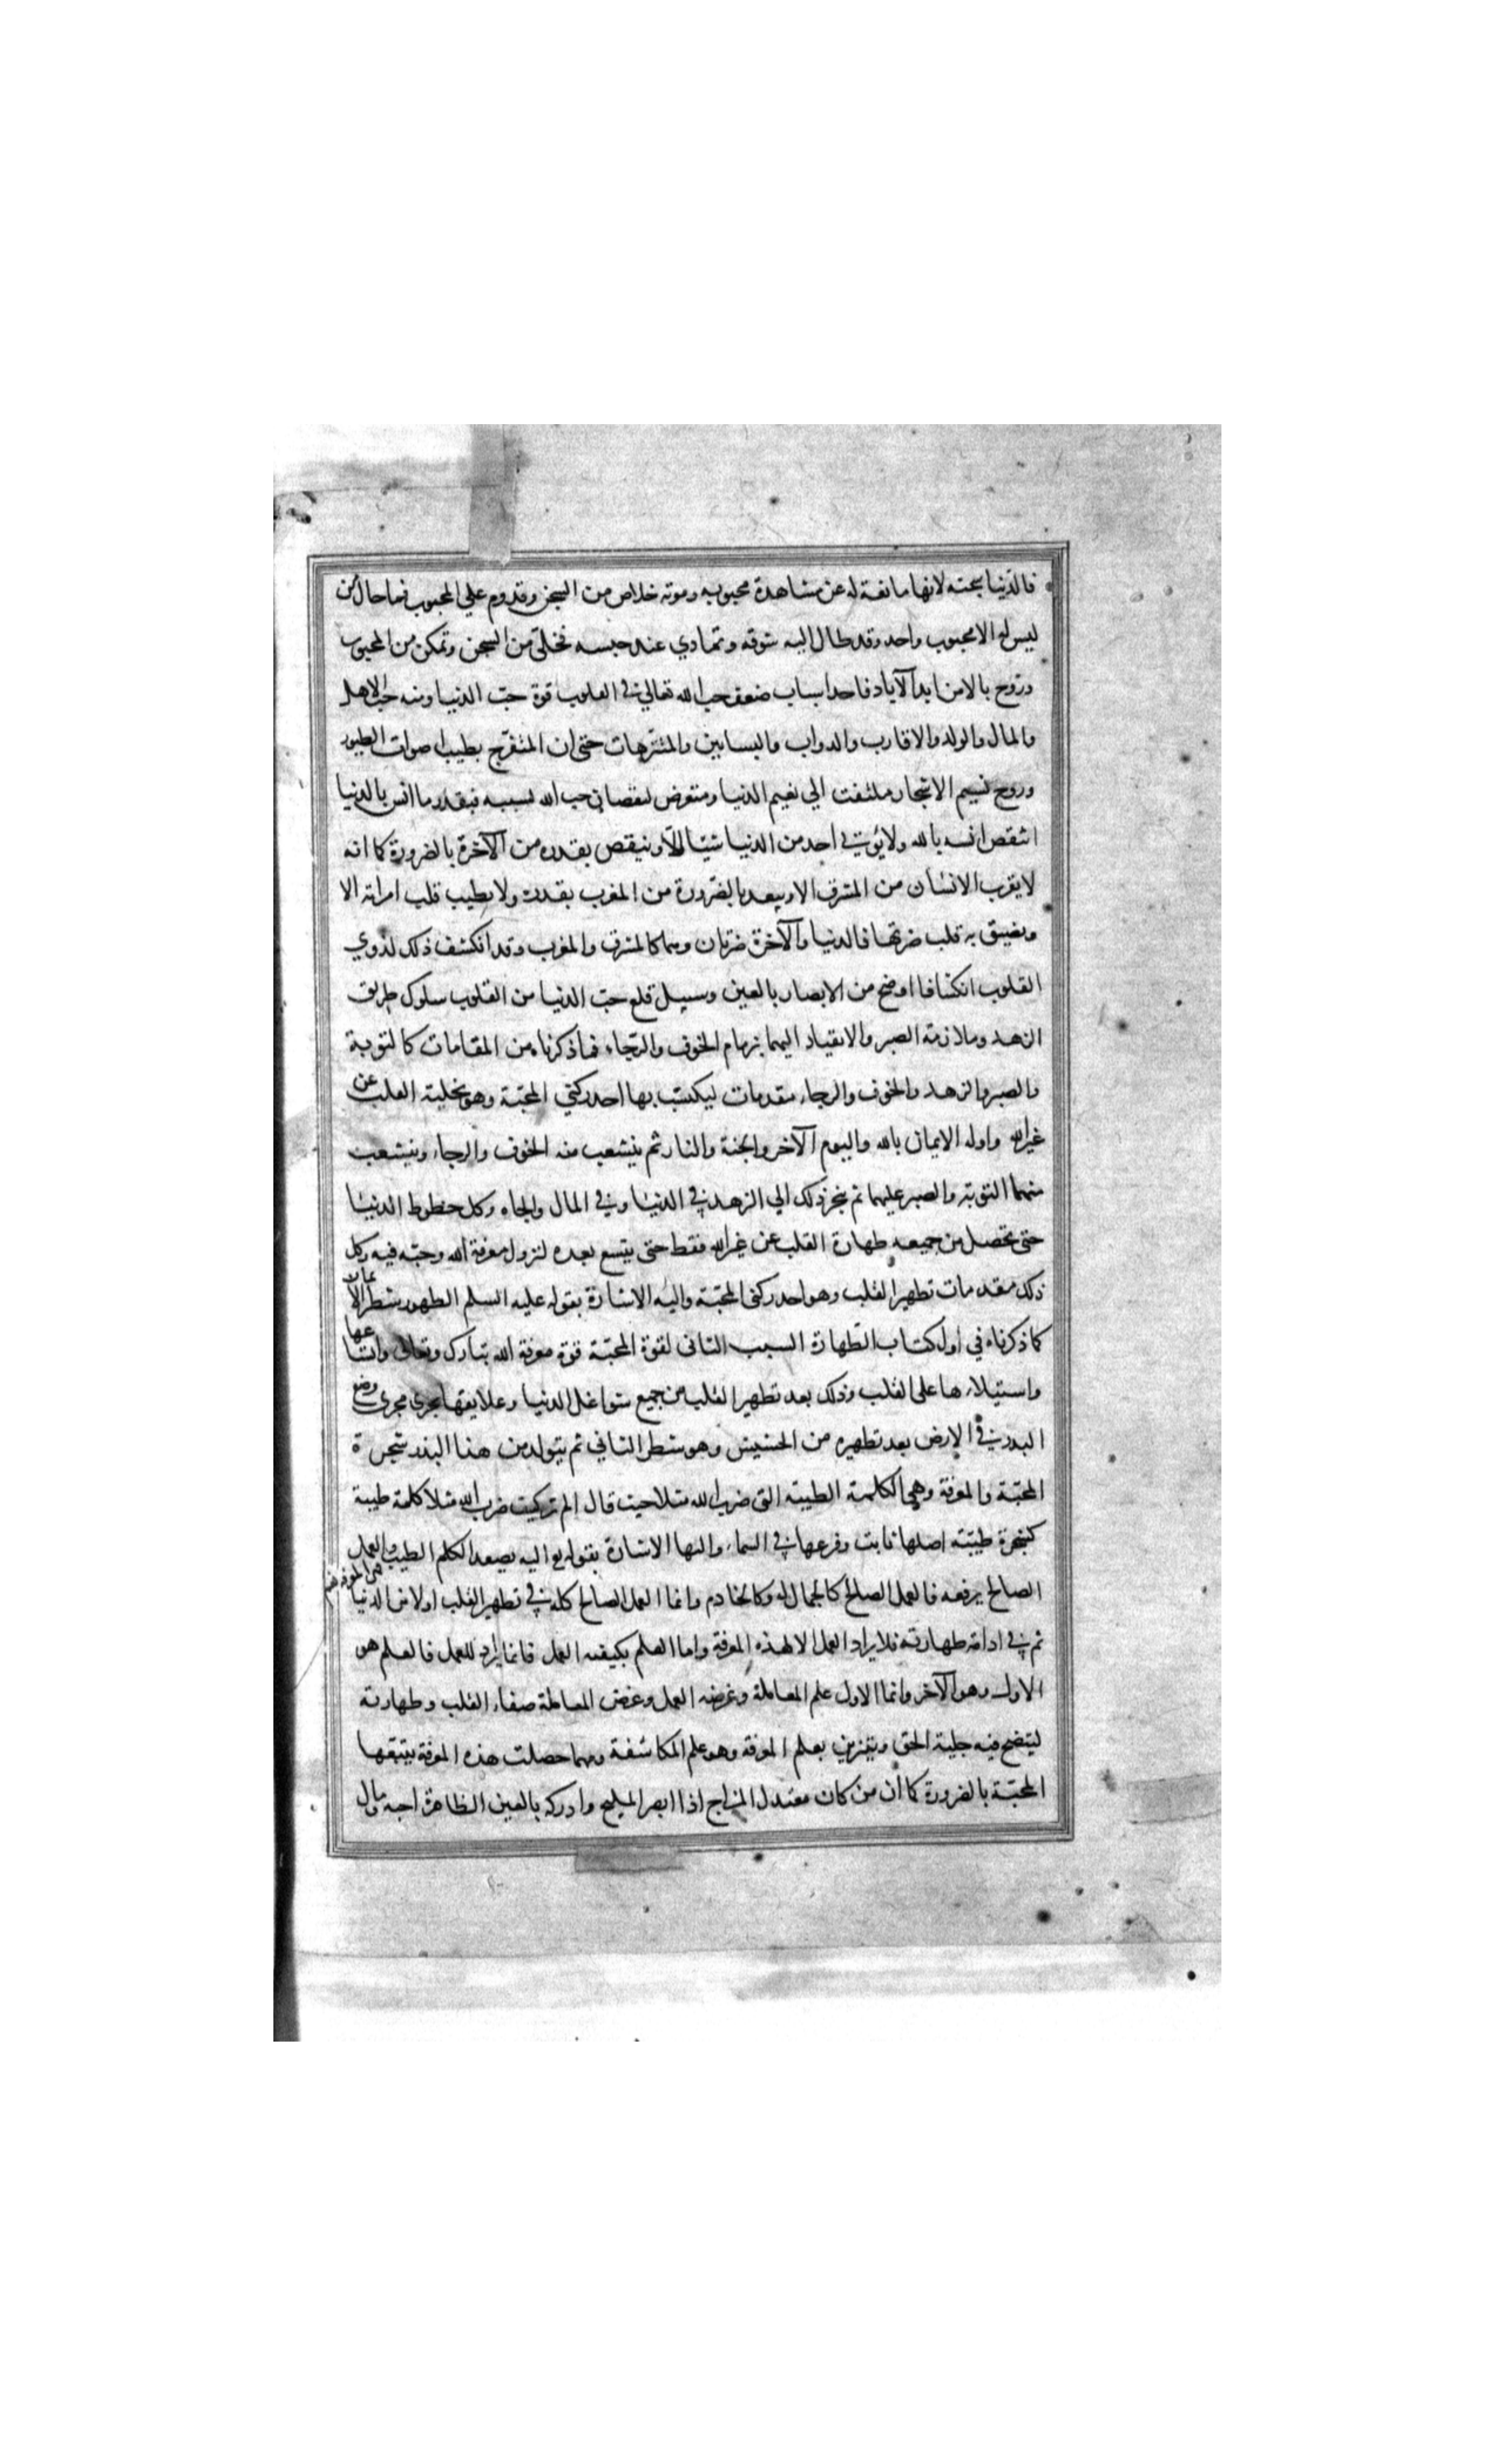 فالدنيا سجنه لانها مانعة له عن مشاهدة محبوبه وموته خلاص من السجن وقدوم علي المحبوب فما حال من
ليس له الا محبوب واحد وقد طال اليه شوقه وتمادي عنه حبسه فخلي من السجن وتمكن من المحبوب
وروح بالامن ابد الآباد فاحد اسباب ضعف حب الله تعالي في القلوب قوة حب الدنيا ومنه حب الاهل
والمال والولد والاقارب والدواب والبساتين والمتنزهات حتى ان المتفرج بطيب اصوات الطيور
وروح نسيم الاشجار ملتفت الي نعيم الدنيا ومتعرض لنقصان حب الله بسببه فبقدر ما انس بالدنيا
انتقص انسه بالله ولا يؤتي احد من الدنيا شيئا الا وينقص بقدره من الآخرة بالضرورة كما انه
لا يقرب الانسان من المشرق الا ويبعد بالضرورة من المغرب بقدره ولا يطيب قلب امراته الا
ويضيق به قلب ضرتها فالدنيا والآخرة ضرتان وهما كالمشرق والمغرب وقد انكشف ذلك لذوي
القلوب انكشافا اوضح من الابصار بالعين وسبيل قلع حب الدنيا من القلوب سلوك طريق
الزهد وملازمة الصبر والانقياد اليهما بزمام الخوف والرجاء فما ذكرناه من المقامات كالتوبة
والصبر والزهد والخوف والرجاء مقدمات ليكتسب بها احد ركني المحبة وهو تخلية القلب عن
غير الله واوله الايمان بالله واليوم الآخر والجنة والنار ثم ينشعب منه الخوف والرجاء وينشعب
منهما التوبة والصبر عليهما ثم ينجر ذلك الي الزهد في الدنيا وفي المال والجاه وكل حظوظ الدنيا
حتى تحصل من جميعه طهارة القلب عن غير الله فقط حتى يتسع بعده لنزول معرفة الله وحبه فيه وكل
ذلك مقدمات تطهير القلب وهو احد ركني المحبة واليه الاشارة بقوله عليه السلم الطهور شطر الايمان
كما ذكرناه في اول كتاب الطهارة السبب الثاني لقوة المحبة قوة معرفة الله تبارك وتعالى واتساعها
واستيلاءها على القلب وذلك بعد تطهير القلب من جميع شواغل الدنيا وعلايقها يجري مجرى وضع
البدر في الارض بعد تطهيره من الحشيش وهو شطر الثاني ثم يتولد من هذا البذر شجرة
المحبة والمعرفة وهي الكلمة الطيبة التي ضرب الله مثلا حيث قال الم تر كيف ضرب الله مثلا كلمة طيبة
كشجرة طيبة اصلها ثابت وفرعها في السماء واليها الاشارة بقوله تع اليه يصعد الكلم الطيب والعمل
هي المعرفة
الصالح يرفعه فالعمل الصالح كالجمال له وكالخادم وانما العمل الصالح كله في تطهير القلب اولا من الدنيا
ثم في ادامة طهارته فلا يراد العمل الا لهذه المعرفة واما العلم بكيفية العمل فانما يراد للعمل فالعلم هو
الاول وهو الآخر وانما الاول علم المعاملة وغرضه العمل وغرض المعاملة صفاء القلب وطهارته
ليتضح فيه جلية الحق ويتزين بعلم المعرفة وهو علم المكاشفة ومهما حصلت هذه المعرفة يتبعها
المحبة بالضرورة كما ان من كان معتدل المزاج اذا ابصر المليح وادركه بالعين الظاهرة احبه ومال